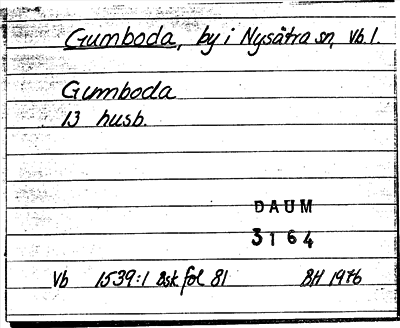 Gumboda, by i Nysätra sn, Vb. l.
Gumboda
13 husb.
DAUM
3164
Vb 1539:1 Bsk fol 81 BH 1976